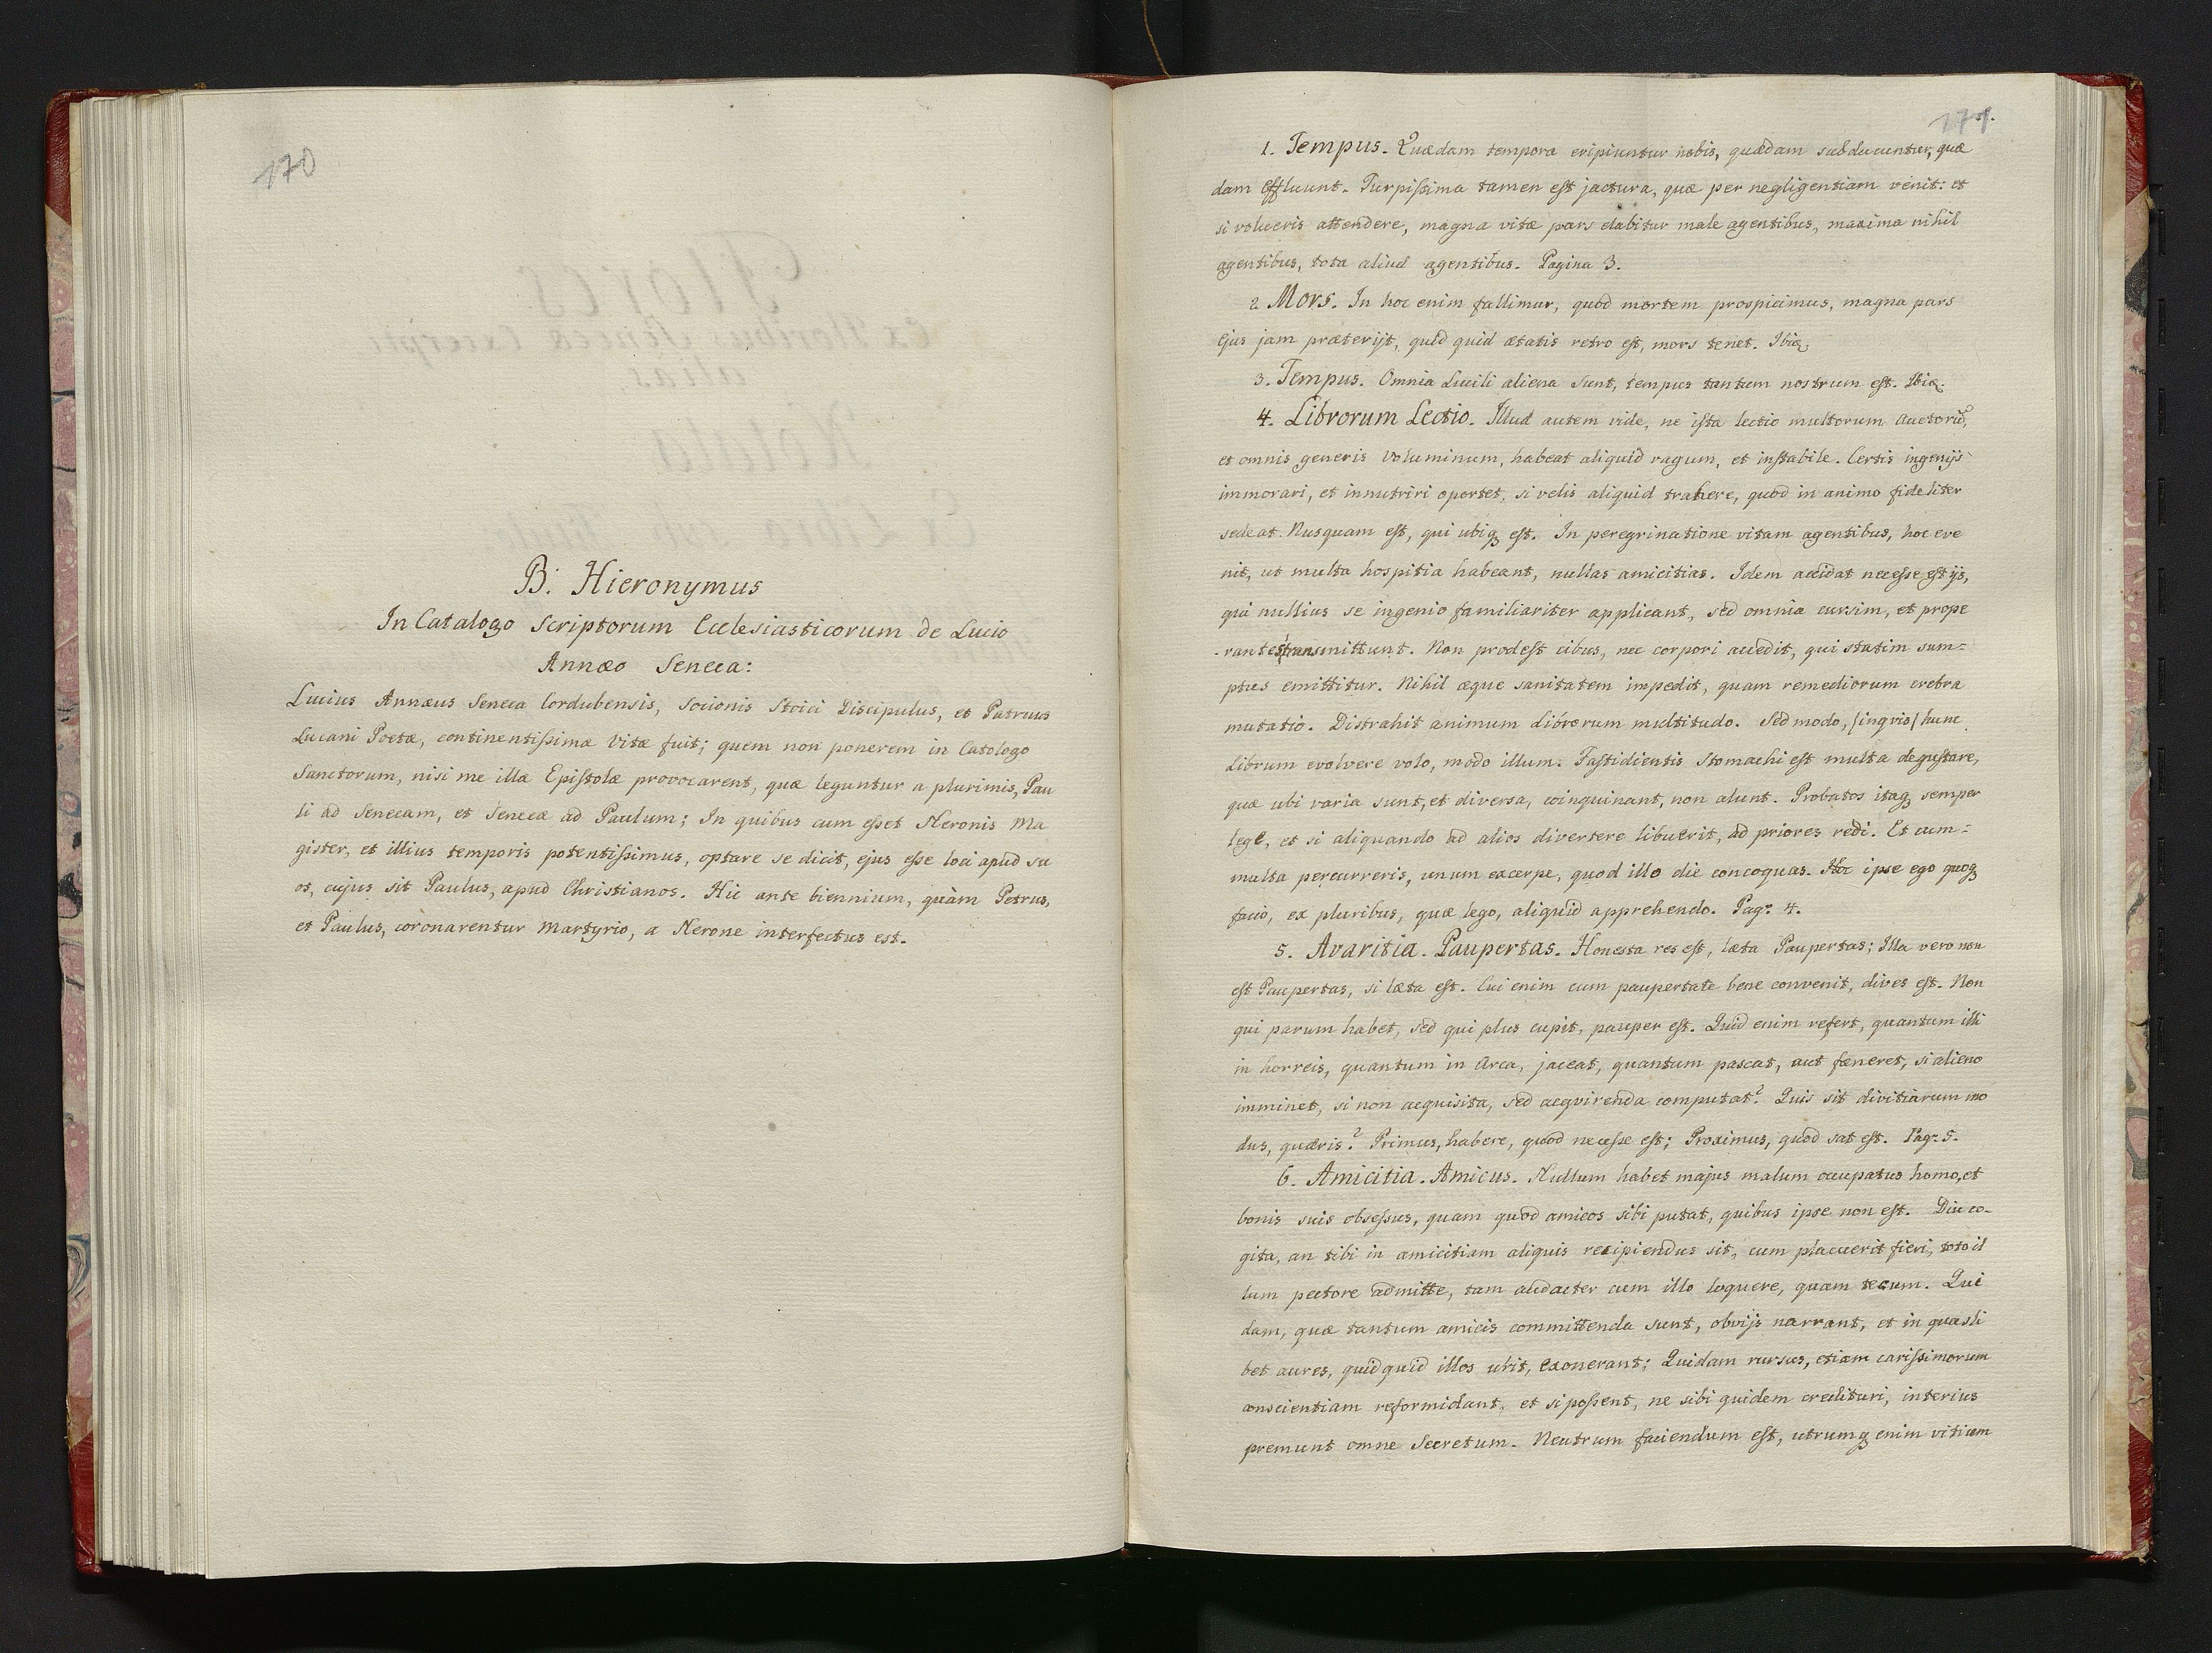 170
B. Hieronymus
In Catalogo Scriptorum Ecclesiasticorum de Lucio
Annæo Seneca:
Lucius Annæus Seneca Cordubensis, Socionis Stoici Discipulus, et Patruus
Lucani Poetæ, continentissimæ Vitæ fuit; quem non ponerem in Catologo
Sanctorum, nisi me illæ Epistolæ provocarent, quæ leguntur a plurimis, Pau
li ad Senecam, et Senecæ ad Paulum; In quibus cum esset Neronis Ma
gister, et illius temporis potentissimus, optare se dicit, ejus esse loci apud su
os, cujus sit Paulus, apud Christianos. Hic ante biennium, quàm Petrus,
et Paulus, coronarentur Martyrio, a Nerone interfectus est.
171.
1. Tempus. Quædam tempora eripiuntur nobis, quædam subducuntur, quæ
dam effluunt. Turpissima tamen est jactura, quæ per negligentiam venit: et
si volueris attendere, magna vitæ pars elabitur male agentibus, maxima nihil
agentibus, tota aliud agentibus. Pagina 3.
2 Mors. In hoc enim fallimur, quod mortem prospicimus, magna pars
ejus jam præterijt, quid quid ætatis retro est, mors tenet. Ibid.
3. Tempus. Omnia Lucili aliena sunt, tempus tantum nostrum est. Ibid.
4. Librorum Lectio. Illud autem vide, ne ista lectio multorum auctorū,
et omnis generis Voluminum, habeat aliquid vagum, et instabile. Certis ingenijs
immorari, et innutriri oportet, si velis aliquid trahere, quod in animo fideliter
sedeat. Nusquam est, qui ubiq est. In peregrinatione vitam agentibus, hoc eve
nit, ut multa hospitia habeant, nullas amicitias. Idem accidat necesse est ijs,
qui nullius se ingenio familiariter applicant, sed omnia cursim, et prope
rantes transmittunt. Non prodest cibus, nec corpori accedit, qui statim sum=
ptus emittitur. Nihil æque sanitatem impedit, quam remediorum crebra
mutatio. Distrahit animum librorum multitudo. Sed modo, /inqvis/ hunc
Librum evolvere volo, modo illum. Fastidientis Stomachi est multa degustare,
quæ ubi varia sunt, et diversa, coinquinant, non alunt. Probatos itaq semper
lege, et si aliquando ad alios divertere libuerit, ad priores redi. Et cum=
multa percurreris, unum excerpe, quod illo die concoquas. Hoc ipse ego quoq
facio, ex pluribus, quæ lego, aliquid apprehendo. Pag: 4.
5. Avaritia. Paupertas. Honesta res est, læta Paupertas; Illa vero non
est Paupertas, si læta est. Cui enim cum paupertate bene convenit, dives est. Non
qui parum habet, sed qui plus cupit, pauper est. Quid enim refert, quantum illi
in horreis, quantum in Arca, jaceat, quantum pascat, aut fæneret, si alieno
imminet, si non acquisita, sed acqvirenda computat? Quis sit divitiarum mo
dus, quæris? Primus, habere, quod necesse est; Proximus, quod sat est. Pag: 5.
6. Amicitia. Amicus. Nullum habet majus malum occupatus homo, et
bonis suis obsessus, quam quod amicos sibi putat, quibus ipse non est. Diu co-
gita, an tibi in amicitiam aliquis recipiendus sit, cum placuerit fieri, toto il
lum pectore admitte, tam audacter cum illo loquere, quam tecum. Qui
dam, quæ tantum amicis committenda sunt, obvijs narrant, et in quasli
bet aures, quidquid illos urit, exonerant; Quidam rursus, etiam carissimorum
conscientiam reformidant, et si possent, ne sibi quidem credituri, interius
premunt omne Secretum. Neutrum faciendum est, utrumq enim vitium